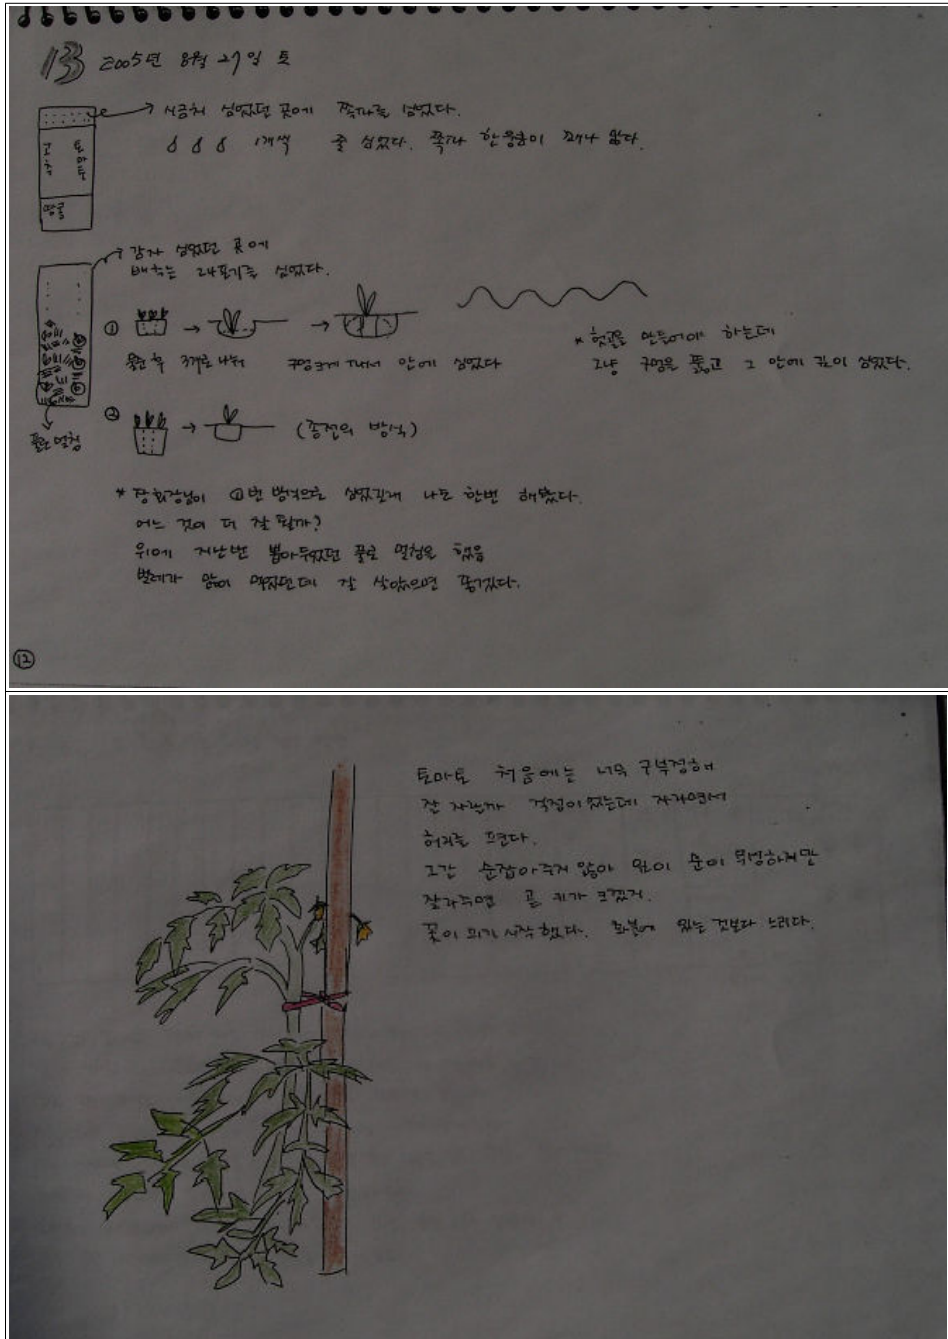 133 2005년 8월 27일 토
시금치 심었던 곳에 쪽파를 심었다.
1개씩 줄 심었다. 쪽파 한 웅큼이 꽤나 많다.
고추 토마토
땅콩
감자 심었던 곳에
배추는 24포기를 심었다.
①
② (종전의 방식)
3개로 나눠 구멍크게 내서 안에 심었다
* 헛골을 만들어야 하는데
그냥 구멍을 뚫고 그 안에 깊이 심었다.
풀로 멀칭
* 장회장님이 ①번 방식으로 심었길래 나도 한번 해봤다.
어느 것이 더 잘 될까?
위에 지난번 뽑아두었던 풀로 멀칭을 했음
벌레가 많이 먹었던데 잘 살았으면 좋겠다.
⑫
토마토 처음에는 너무 구부정해
잘 자랄까 걱정이 있는데 자라면서
허리를 편다.
그간 순잡아주지 않아 순이 무성하지만
잘라주면 곧 키가 크겠지.
꽃이 피기 시작했다. 화분에 있는 것보다 느리다.